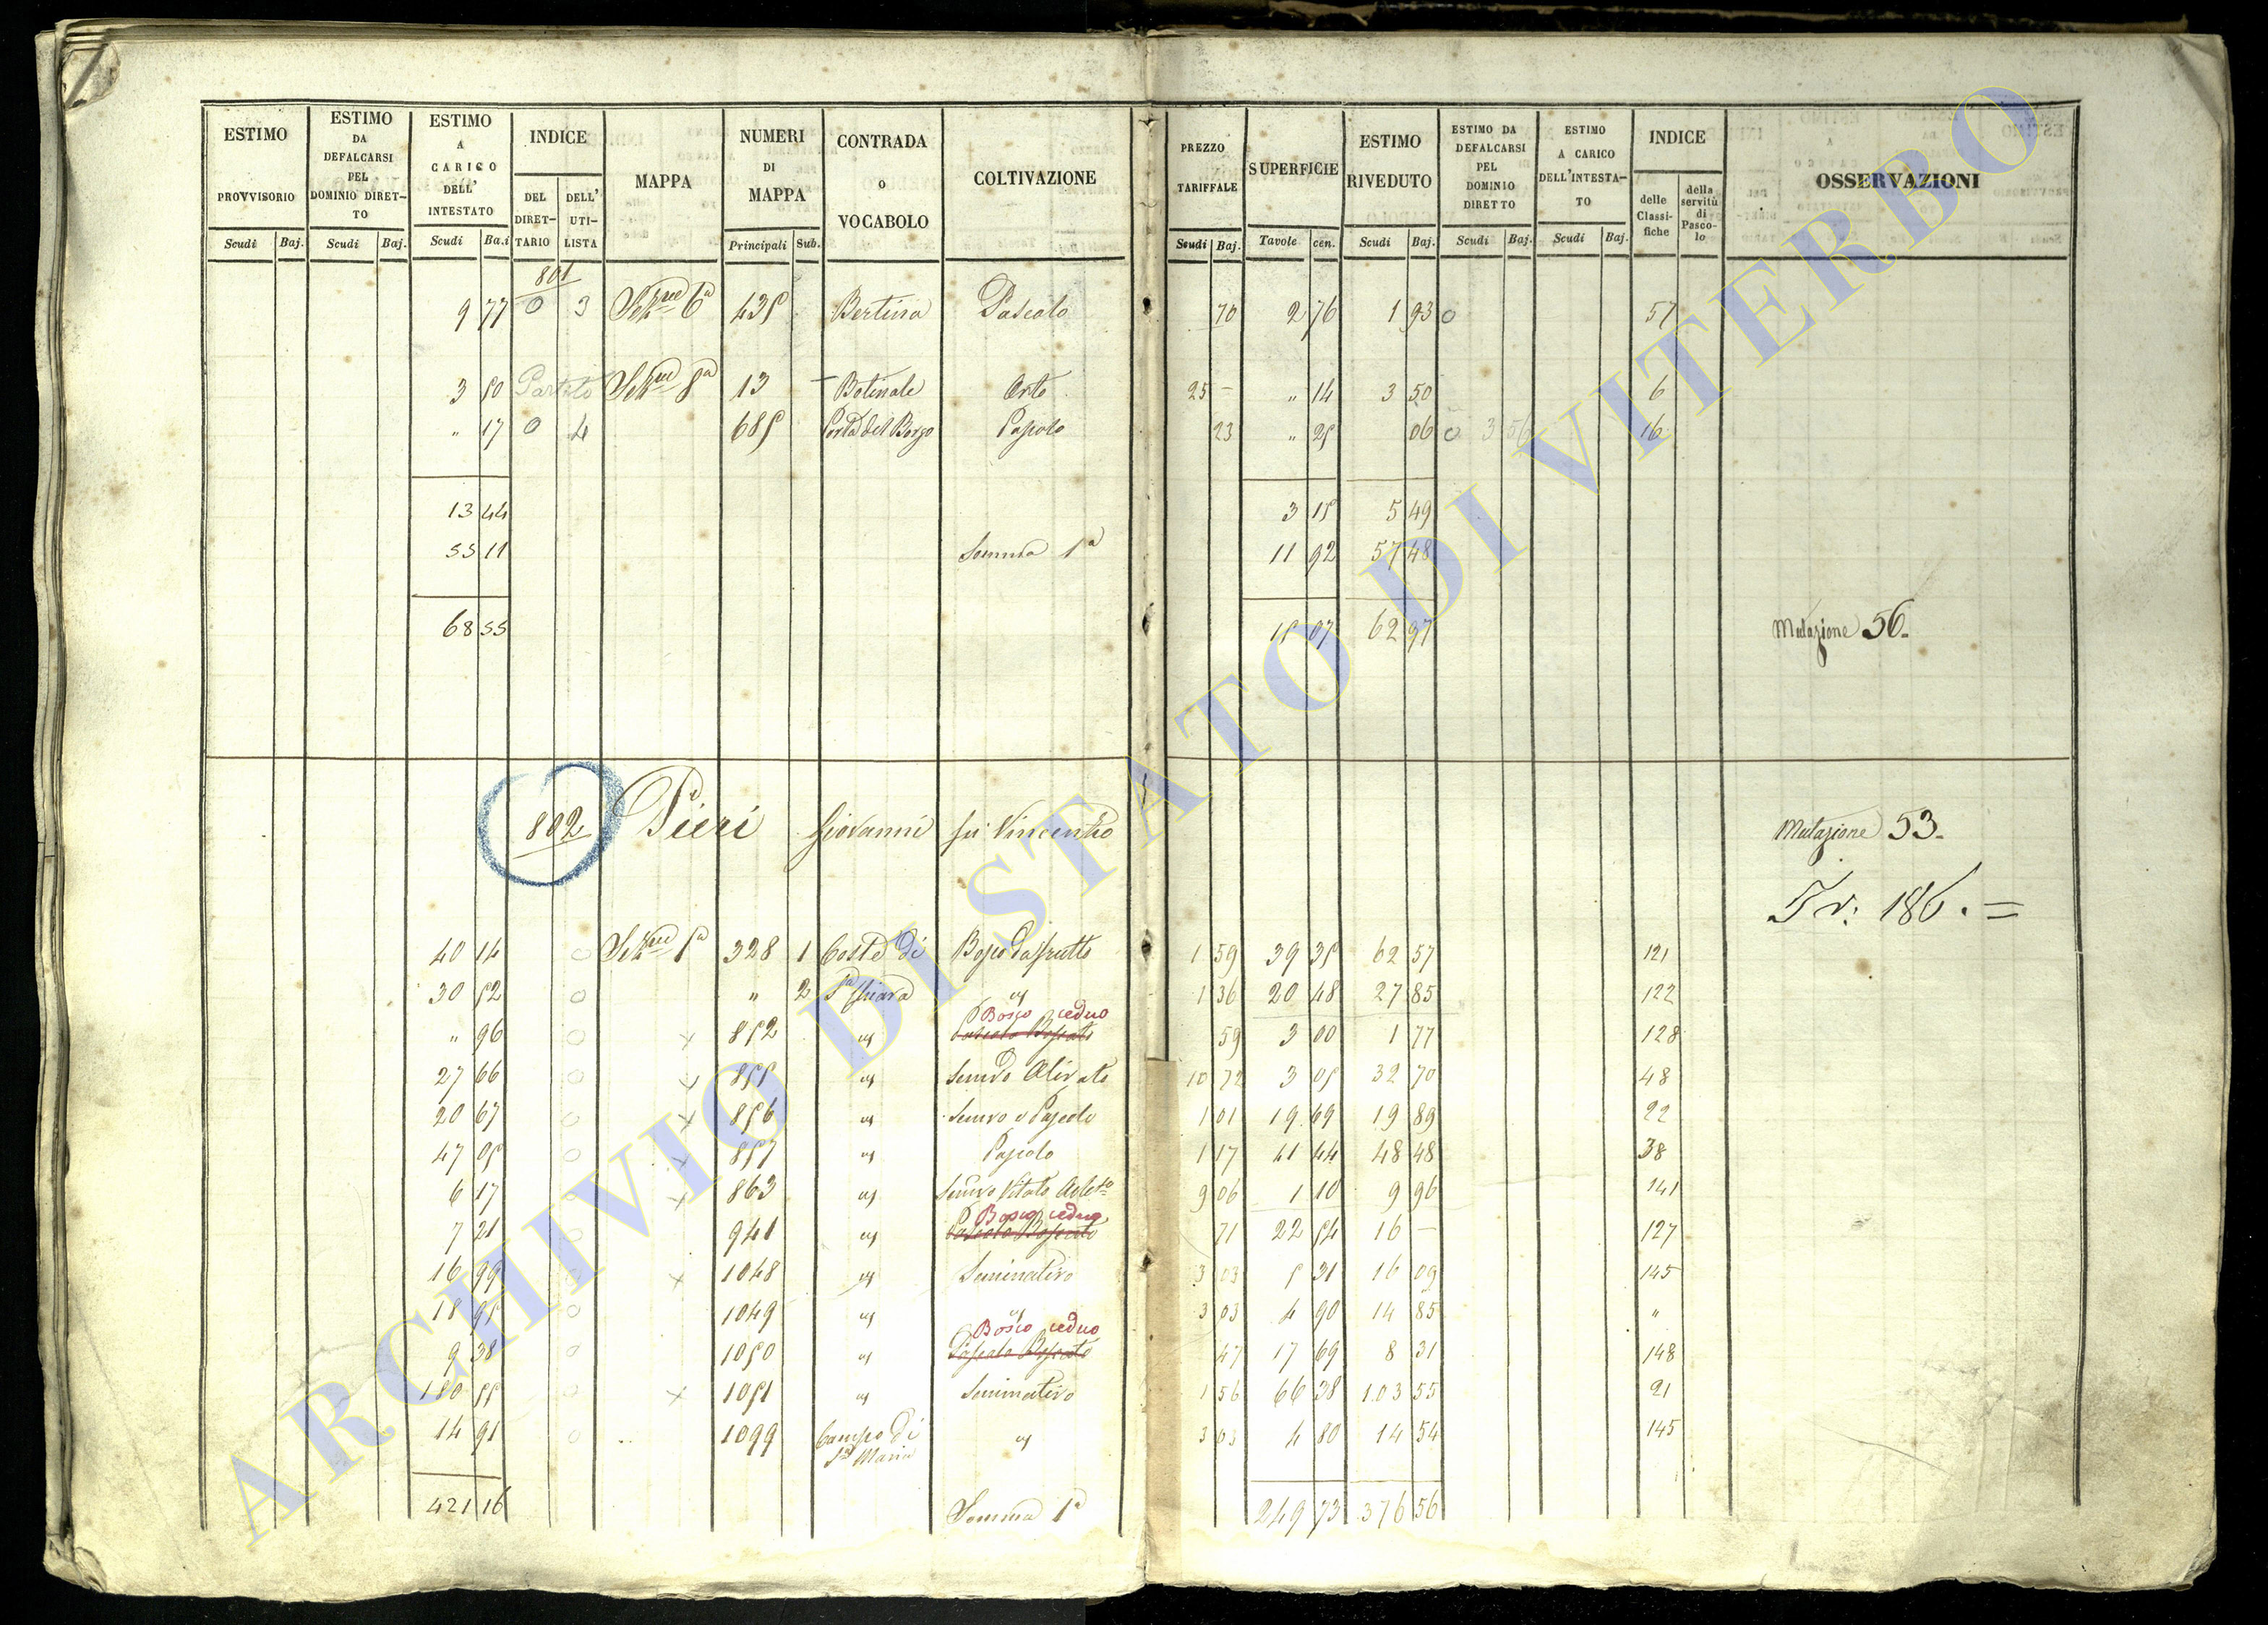 ESTIMO PROVVISORIO Scudi Baj.
ESTIMO DA DEFALCARSI PEL DOMINIO DIRETTO Scudi Baj.
ESTIMO A CARICO DELL' INTESTATO Scudi Ba.i
INDICE DEL DIRETTARIO DELL' UTILISTA
MAPPA
NUMERI DI MAPPA Principali Sub.
CONTRADA O VOCABOLO
COLTIVAZIONE
PREZZO TARIFFALE Scudi Baj.
SUPERFICIE Tavole cen.
ESTIMO RIVEDUTO Scudi Baj.
ESTIMO DA DEFALCARSI PEL DOMINIO DIRETTO Scudi Baj.
ESTIMO A CARICO DELL'INTESTATO Scudi Baj.
INDICE delle Classifiche della servitù di Pascolo
OSSERVAZIONI
801
9 77 0 3 Sez.ne 6a 435 Bertina Pascolo 70 2 76 1 93 0 57
3 50 Partito Sez.ne 8a 13 Botinale Orto 25 – " 14 3 50 6
" 17 0 4 685 Porta del Borgo Pascolo 23 " 25 06 0 3 56 16
13 44 3 15 5 49
55 11 Somma 1a 11 92 57 48
68 55 15 07 62 97 Mutazione 56.
802 Pieri Giovanni fu Vincenzo Mutazione 53.
Tr: 186. =
40 14 0 Sez.ne 1a 328 1 Coste di Bosco da frutto 1 59 39 35 62 57 121
30 52 0 " 2 Sa Chiara " 1 36 20 48 27 85 122
Bosco ceduo
" 96 0 x 852 " Pascolo Boscato 59 3 00 1 77 128
27 66 0 x 855 " Semvo Olivato 10 72 3 05 32 70 48
20 67 0 x 856 " Semvo o Pascolo 1 01 19 69 19 89 22
47 05 0 x 857 " Pascolo 1 17 41 44 48 48 38
6 17 0 x 863 " Semvo Vitato 9 06 1 10 9 96 141
Bosco ceduo
7 21 0 941 " Pascolo Boscato 71 22 54 16 – 127
16 99 0 x 1048 " Seminativo 3 03 5 31 16 09 145
18 95 0 1049 " " 3 03 4 90 14 85 "
Bosco ceduo
9 38 0 1050 " Pascolo Boscato 47 17 69 8 31 148
180 55 0 x 1051 " Seminativo 1 56 66 38 103 55 21
14 91 0 1099 Campo di Sa Maria " 3 03 4 80 14 54 145
421 16 Somma 1a 249 73 376 56
ARCHIVIO DI STATO DI VITERBO